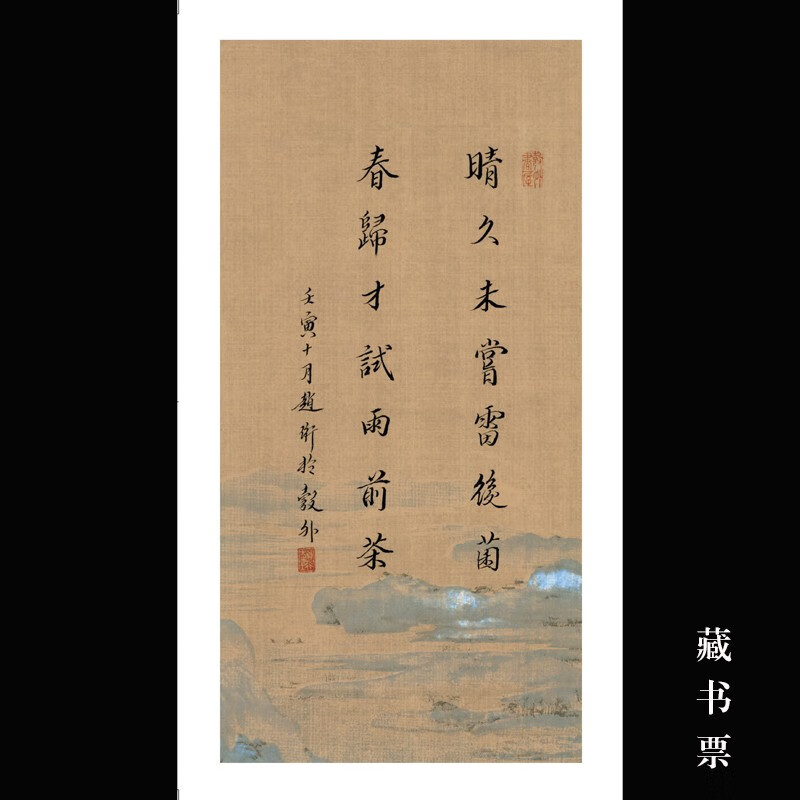 晴久未嘗雷後菌
春歸才試雨前茶
壬寅十月趙衍於彀外
藏书票